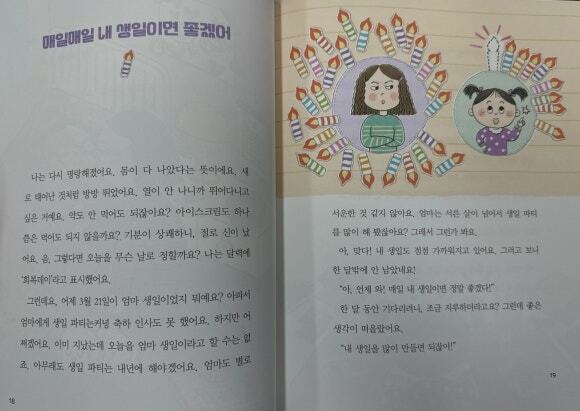 매일매일 내 생일이면 좋겠어
나는 다시 명랑해졌어요. 몸이 다 나았다는 뜻이에요. 새
로 태어난 것처럼 방방 뛰었어요. 열이 안 나니까 뛰어다니고
싶은 거예요. 약도 안 먹어도 되잖아요? 아이스크림도 하나
쯤은 먹어도 되지 않을까요? 기분이 상쾌하니, 절로 신이 났
어요. 음, 그렇다면 오늘을 무슨 날로 정할까요? 나는 달력에
‘회복데이’라고 표시했어요.
그런데요, 어제 3월 21일이 엄마 생일이었지 뭐예요? 아파서
엄마에게 생일 파티는커녕 축하 인사도 못 했어요. 하지만 어
쩌겠어요. 이미 지났는데 오늘을 엄마 생일이라고 할 수는 없
죠. 아무래도 생일 파티는 내년에 해야겠어요. 엄마도 별로
18
서운한 것 같지 않아요. 엄마는 서른 살이 넘어서 생일 파티
를 많이 해 봤잖아요? 그래서 그런가 봐요.
아, 맞다! 내 생일도 점점 가까워지고 있어요. 그러고 보니
한 달밖에 안 남았네요!
“아, 언제 와! 매일 내 생일이면 정말 좋겠다!”
한 달 동안 기다리려니, 조금 지루하더라고요? 그런데 좋은
생각이 떠올랐어요.
“내 생일을 많이 만들면 되잖아!”
19